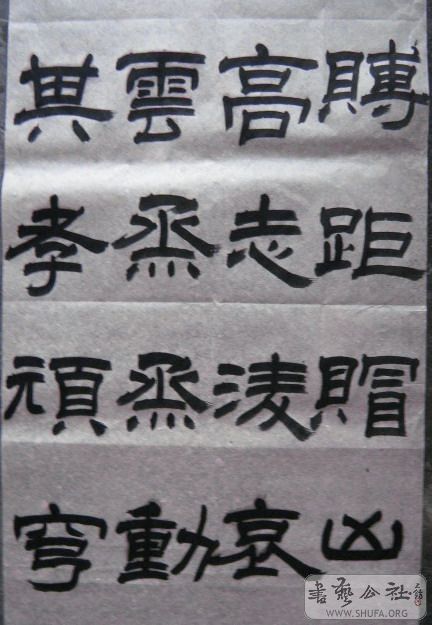 賻距賵凶
高志淩哀
雲烝烝動
其孝頑穹
書藝公社
WWW.SHUFA.ORG